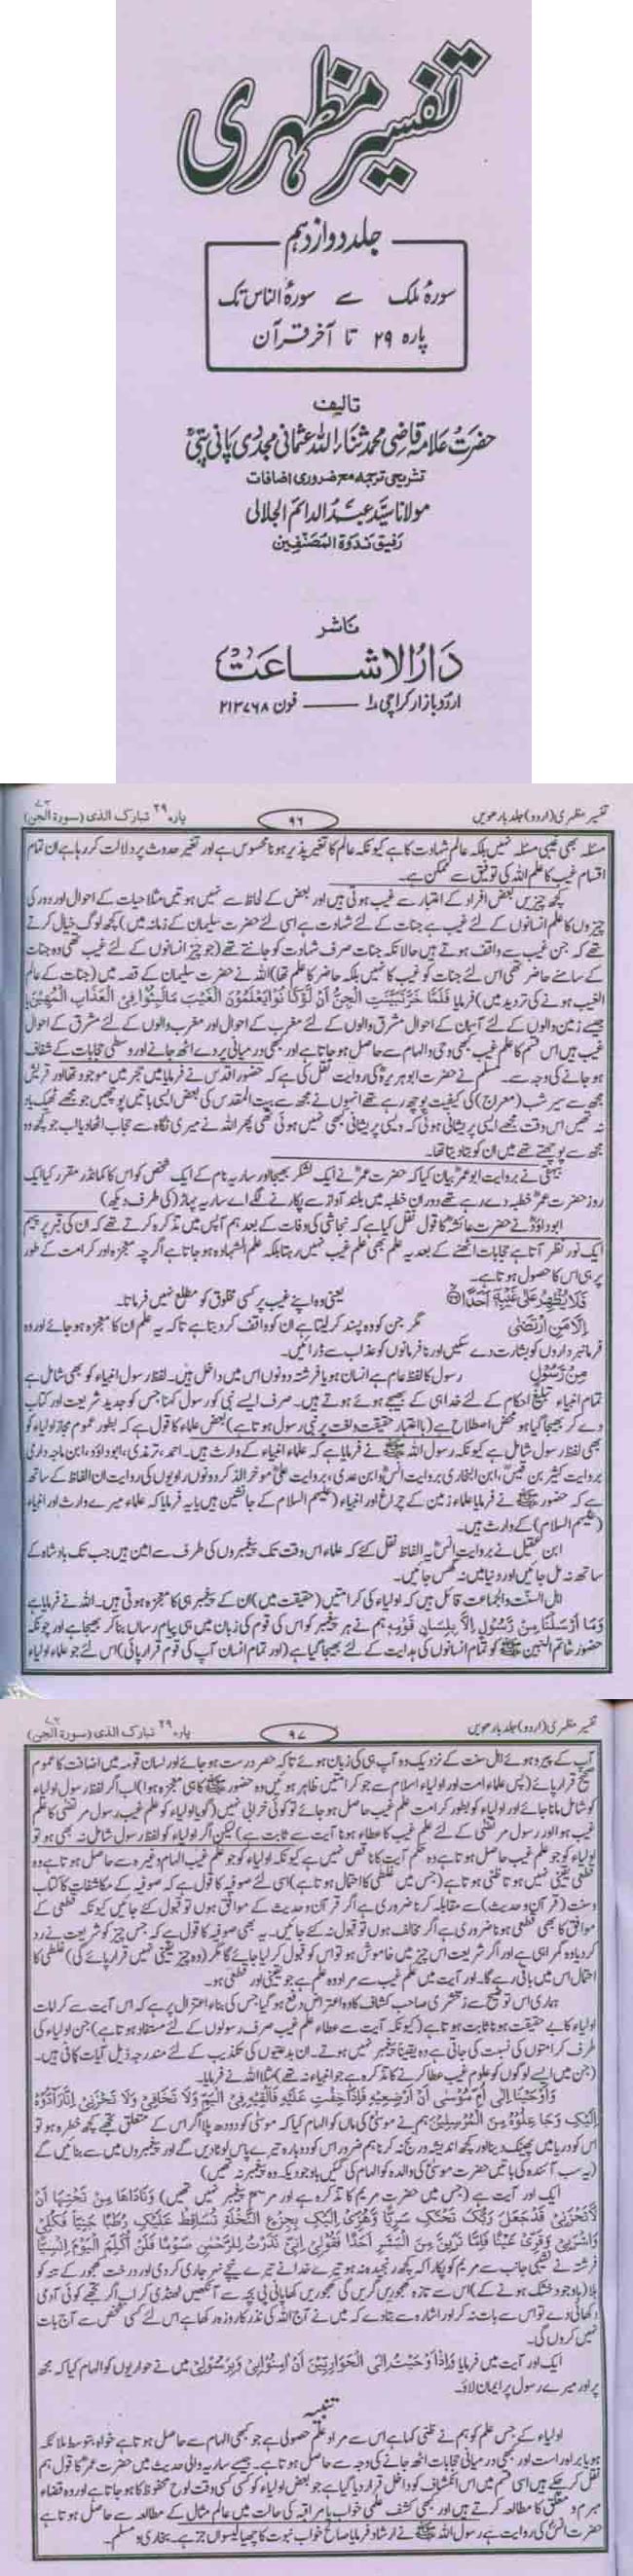 تفسیر مظہری
جلد دوازدہم
سورۂ ملک سے سورۂ الناس تک
پارہ ۲۹ تا آخر قرآن
تالیف
حضرت علامہ قاضی محمد ثناء اللہ عثمانی مجددی پانی پتیؒ
تشریحی ترجمہ مع ضروری اضافات
مولانا سید عبد الدائم الجلالی
رفیق ندوۃ المصنفین
ناشر
دارالاشاعت
اردو بازار کراچی ۱ فون ۲۱۳۷۶۸
تفسیر مظہری (اردو) جلد بارھویں ۹۶ پارہ ۲۹ تبارک الذی (سورۃ الجن)
مسئلہ بھی غیبی مسئلہ نہیں بلکہ عالم شہادت کا ہے کیونکہ عالم کا تغیر پذیر ہونا محسوس ہے اور تغیر حدوث پر دلالت کر رہا ہے ان تمام
اقسام غیب کا علم اللہ کی توفیق سے ممکن ہے۔
کچھ چیزیں بعض افراد کے اعتبار سے غیب ہوتی ہیں اور بعض کے لحاظ سے نہیں ہوتیں مثلا جنات کے احوال اور دور کی
چیزوں کا علم انسانوں کے لئے غیب ہے جنات کے لئے شہادت ہے اسی لئے حضرت سلیمان کے زمانہ میں) کچھ لوگ خیال کرتے
تھے کہ جن غیب سے واقف ہوتے ہیں حالانکہ جنات صرف شہادت کو جانتے تھے (جو چیز انسانوں کے لئے غیب تھی وہ جنات
کے سامنے حاضر تھی اس لئے جنات کو غیب کا نہیں بلکہ حاضر کا علم تھا) اللہ نے حضرت سلیمان کے قصہ میں (جنات کے عالم
الغیب ہونے کی تردید میں) فرمایا فَلَمَّا خَرَّ تَبَيَّنَتِ الْجِنُّ أَنْ لَّوْ كَانُوا يَعْلَمُونَ الْغَيْبَ مَا لَبِثُوا فِي الْعَذَابِ الْمُهِينِ یا
جیسے زمین والوں کے لئے آسمان کے احوال مشرق والوں کے لئے مغرب کے احوال اور مغرب والوں کے لئے مشرق کے احوال
غیب ہیں اس قسم کا علم غیب کبھی وحی و الہام سے حاصل ہو جاتا ہے اور کبھی درمیانی پردے اٹھ جانے اور وسطی حجابات کے شفاف
ہو جانے کی وجہ سے۔ مسلم نے حضرت ابو ہریرہؓ کی روایت نقل کی ہے کہ حضور اقدس نے فرمایا میں حجر میں موجود تھا اور قریش
مجھ سے سیر شب (معراج) کی کیفیت پوچھ رہے تھے انہوں نے مجھ سے بیت المقدس کی بعض ایسی باتیں پوچھیں جو مجھے ٹھیک یاد
نہ تھیں اس وقت مجھے ایسی پریشانی ہوئی کہ ویسی پریشانی کبھی نہیں ہوئی تھی پھر اللہ نے میری نگاہ سے حجاب اٹھا دیا اب جو کچھ وہ
مجھ سے پوچھتے تھے میں ان کو بتا دیتا تھا۔
بیہقی نے بروایت ابو عمرؓ بیان کیا کہ حضرت عمرؓ نے ایک لشکر بھیجا اور ساریہ نام کے ایک شخص کو اس کا کمانڈر مقرر کیا ایک
روز حضرت عمرؓ خطبہ دے رہے تھے دوران خطبہ میں بلند آواز سے پکارنے لگے اے ساریہ پہاڑ (کی طرف دیکھ)
ابو داؤد نے حضرت عائشہؓ کا قول نقل کیا ہے کہ نجاشی کی وفات کے بعد ہم آپس میں تذکرہ کرتے تھے کہ ان کی قبر پر پیہم
ایک نور نظر آتا ہے حجابات اٹھنے کے بعد یہ علم بھی علم غیب نہیں رہتا بلکہ علم الشہادہ ہو جاتا ہے اگرچہ معجزہ اور کرامت کے طور
پر ہی اس کا حصول ہوتا ہے۔
فَلَا يُظْهِرُ عَلَىٰ غَيْبِهِ أَحَدًا یعنی وہ اپنے غیب پر کسی مخلوق کو مطلع نہیں فرماتا۔
إِلَّا مَنِ ارْتَضَىٰ مگر جن کو وہ پسند کر لیتا ہے ان کو واقف کر دیتا ہے تاکہ یہ علم ان کا معجزہ ہو جائے اور وہ
فرمانبرداروں کو بشارت دے سکیں اور نافرمانوں کو عذاب سے ڈرائیں۔
مِن رَّسُولٍ رسول کا لفظ عام ہے انسان ہو یا فرشتہ دونوں اس میں داخل ہیں۔ لفظ رسول انبیاء کو بھی شامل ہے
تمام انبیاء تبلیغ احکام کے لئے خدا ہی کے بھیجے ہوئے ہوتے ہیں۔ صرف ایسے نبی کو رسول کہنا جس کو جدید شریعت اور کتاب
دے کر بھیجا گیا ہو محض اصطلاح ہے (باعتبار حقیقت و لغت ہر نبی رسول ہوتا ہے) بعض علماء کا قول ہے کہ بطور عموم مجاز اولیاء کو
بھی لفظ رسول شامل ہے کیونکہ رسول اللہ ﷺ نے فرمایا ہے کہ علماء انبیاء کے وارث ہیں۔ احمد، ترمذی، ابو داؤد، ابن ماجہ، دارمی
بروایت کثیر بن قیس، ابن النجاری بروایت انسؓ وابن عدی، بروایت علیؓ موخر الذکر دونوں راویوں کی روایت ان الفاظ کے ساتھ
ہے کہ حضور ﷺ نے فرمایا علماء زمین کے چراغ اور انبیاء (علیہم السلام) کے جانشین ہیں یا یہ فرمایا کہ علماء میرے وارث اور انبیاء
(علیہم السلام) کے وارث ہیں۔
ابن عقیل نے بروایت انسؓ یہ الفاظ نقل کئے کہ علماء اس وقت تک پیغمبروں کی طرف سے امین ہیں جب تک بادشاہ کے
ساتھ نہ مل جائیں اور دنیا میں نہ گھس جائیں۔
اہل السنت والجماعت قائل ہیں کہ اولیاء کی کرامتیں (حقیقت میں) ان کے پیغمبر ہی کا معجزہ ہوتی ہیں۔ اللہ نے فرمایا ہے
وَمَا أَرْسَلْنَا مِنْ رَّسُولٍ إِلَّا بِلِسَانِ قَوْمِهِ ہم نے ہر پیغمبر کو اس کی قوم کی زبان میں ہی پیام رساں بنا کر بھیجا ہے اور چونکہ
حضور خاتم النبیین ﷺ کو تمام انسانوں کی ہدایت کے لئے بھیجا گیا ہے (اور تمام انسان آپ کی قوم قرار پائی) اس لئے جو علماء اولیاء
تفسیر مظہری (اردو) جلد بارھویں ۹۷ پارہ ۲۹ تبارک الذی (سورۃ الجن)
آپ کے پیرو ہوئے اہل سنت کے نزدیک وہ آپ ہی کی زبان ہوئے تاکہ حصر درست ہو جائے اور لسان قومہ میں اضافت کا عموم
صحیح قرار پائے (پس علماء امت اور اولیاء اسلام سے جو کرامتیں ظاہر ہوئیں وہ حضور ﷺ کا ہی معجزہ ہوا) اب اگر لفظ رسول اولیاء
کو شامل مانا جائے اور اولیاء کو بطور کرامت علم غیب حاصل ہو جائے تو کوئی خرابی نہیں (گویا اولیاء کو علم غیب رسول مرتضی کا علم
غیب ہوا اور رسول مرتضی کے لئے علم غیب کا عطاء ہونا آیت سے ثابت ہے) لیکن اگر اولیاء کو لفظ رسول شامل نہ بھی ہو تو
اولیاء کو جو علم غیب حاصل ہوتا ہے وہ حکم آیت کا ناقض نہیں ہے کیونکہ اولیاء کو جو علم غیب الہام وغیرہ سے حاصل ہوتا ہے وہ
قطعی یقینی نہیں ہوتا ظنی ہوتا ہے (جس میں غلطی کا احتمال ہوتا ہے) اسی لئے صوفیہ کا قول ہے کہ صوفیہ کے مکاشفات کا کتاب
و سنت (قرآن و حدیث) سے مقابلہ کرنا ضروری ہے اگر قرآن و حدیث کے موافق ہوں تو قبول کئے جائیں کیونکہ قطعی کے
موافق کا بھی قطعی ہونا ضروری ہے اگر مخالف ہوں تو قبول نہ کئے جائیں۔ یہ بھی صوفیہ کا قول ہے کہ جس چیز کو شریعت نے رد
کر دیا وہ گمراہی ہے اور اگر شریعت اس چیز میں خاموش ہو تو اس کو قبول کر لیا جائے گا مگر (وہ چیز یقینی نہیں قرار پائے گی) غلطی کا
احتمال اس میں باقی رہے گا۔ اور آیت میں علم غیب سے مراد وہ علم ہے جو یقینی اور قطعی ہو۔
ہماری اس توضیح سے زمخشری صاحب کشاف کا وہ اعتراض دفع ہو گیا جس کی بناء اعتزال پر ہے کہ اس آیت سے کرامات
اولیاء کا بے حقیقت ہونا ثابت ہوتا ہے (کیونکہ آیت سے عطاء علم غیب صرف رسولوں کے لئے مستفاد ہوتا ہے) جن اولیاء کی
طرف کرامتوں کی نسبت کی جاتی ہے وہ یقیناً پیغمبر نہیں ہوتے۔ ان بدعتیوں کی تکذیب کے لئے مندرجہ ذیل آیات کافی ہیں۔
(جن میں ایسے لوگوں کو علوم غیب عطا کرنے کا تذکرہ ہے جو انبیاء نہ تھے) مثلا اللہ نے فرمایا۔
وَأَوْحَيْنَا إِلَىٰ أُمِّ مُوسَىٰ أَنْ أَرْضِعِيهِ فَإِذَا خِفْتِ عَلَيْهِ فَأَلْقِيهِ فِي الْيَمِّ وَلَا تَخَافِي وَلَا تَحْزَنِي إِنَّا رَادُّوهُ
إِلَيْكِ وَجَاعِلُوهُ مِنَ الْمُرْسَلِينَ ہم نے موسیٰؑ کی ماں کو الہام کیا کہ موسیٰؑ کو دودھ پلا اگر اس کے متعلق تجھے کچھ خطرہ ہو تو
اس کو دریا میں پھینک دینا اور کچھ اندیشہ و رنج نہ کرنا ہم ضرور اس کو دوبارہ تیرے پاس لوٹا دیں گے اور پیغمبروں میں سے بنائیں گے
(یہ سب آئندہ کی باتیں حضرت موسیٰؑ کی والدہ کو الہام کی گئیں باوجودیکہ وہ پیغمبر نہ تھیں)
ایک اور آیت ہے (جس میں حضرت مریم کا تذکرہ ہے اور مریم پیغمبر نہیں تھیں) وَنَادَاهَا مِنْ تَحْتِهَا أَنْ
لَّا تَحْزَنِي قَدْ جَعَلَ رَبُّكِ تَحْتَكِ سَرِيًّا وَهُزِّي إِلَيْكِ بِجِذْعِ النَّخْلَةِ تُسَاقِطْ عَلَيْكِ رُطَبًا جَنِيًّا فَكُلِي
وَاشْرَبِي وَقَرِّي عَيْنًا فَإِمَّا تَرَيِنَّ مِنَ الْبَشَرِ أَحَدًا فَقُولِي إِنِّي نَذَرْتُ لِلرَّحْمَٰنِ صَوْمًا فَلَنْ أُكَلِّمَ الْيَوْمَ إِنْسِيًّا
فرشتہ نے نشیبی جانب سے مریم کو پکارا کہ کچھ رنجیدہ نہ ہو تیرے خدا نے تیرے نیچے نہر جاری کر دی اور درخت کھجور کے تنہ کو
ہلا (باوجود خشک ہونے کے) اس سے تازہ کھجوریں گریں گی کھجوریں کھا پانی پی بچہ سے آنکھیں ٹھنڈی کر اب اگر تجھے کوئی آدمی
دکھائی دے تو اس سے بات نہ کر اور اشارہ سے بتا دے کہ میں نے آج اللہ کی نذر کا روزہ رکھا ہے اس لئے کسی شخص سے آج بات
نہیں کروں گی۔
ایک اور آیت میں فرمایا وَإِذْ أَوْحَيْتُ إِلَى الْحَوَارِيِّينَ أَنْ آمِنُوا بِي وَبِرَسُولِي میں نے حواریوں کو الہام کیا کہ مجھ
پر اور میرے رسول پر ایمان لاؤ۔
تنبیہ
اولیاء کے جس علم کو ہم نے ظنی کہا ہے اس سے مراد علم حصولی ہے جو کبھی الہام سے حاصل ہوتا ہے خواہ بتوسط ملائکہ
ہو یا براہ راست اور کبھی درمیانی حجابات اٹھ جانے کی وجہ سے حاصل ہوتا ہے۔ جیسے ساریہ والی حدیث میں حضرت عمرؓ کا قول ہم
نقل کر چکے ہیں اسی قسم میں اس انکشاف کو داخل قرار دیا گیا ہے جو بعض اولیاء کو کسی کسی وقت لوح محفوظ کا ہو جاتا ہے اور وہ قضاء
مبرم و معلق کا مطالعہ کرتے ہیں اور کبھی کشف علمی خواب یا مراقبہ کی حالت میں عالم مثال کے مطالعہ سے حاصل ہوتا ہے
حضرت انسؓ کی روایت ہے رسول اللہ ﷺ نے ارشاد فرمایا صالح خواب نبوت کا چھیالیسواں جز ہے۔ بخاری و مسلم۔